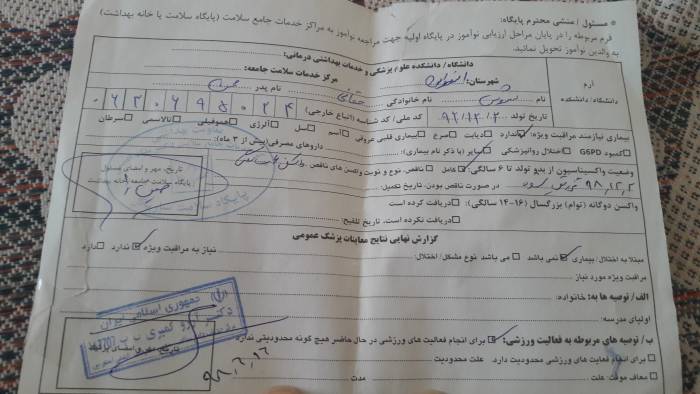 ● مسئول / منشی محترم پایگاه:
فرم مربوطه را در پایان مراحل ارزیابی نوآموز در پایگاه اولیه جهت مراجعه نوآموز به مراکز خدمات جامع سلامت (پایگاه سلامت یا خانه بهداشت)
به والدین نوآموز تحویل نمائید.
آرم
دانشگاه/ دانشکده
دانشگاه / دانشکده علوم پزشکی و خدمات بهداشتی درمانی:
شهرستان: مرکز خدمات سلامت جامعه:
نام نام خانوادگی نام پدر
تاریخ تولد ۹۲/۱۲/۲ کد ملی/ کد شناسه (اتباع خارجی) ۰۶۲۰۶۹۵۰۲۴
بیماری نیازمند مراقبت ویژه: ندارد دیابت صرع بیماری قلبی عروقی آسم سل آلرژی هموفیلی تالاسمی سرطان
کمبود G6PD اختلال روانپزشکی سایر (با ذکر نام بیماری): داروهای مصرفی (بیش از ۳ ماه):
وضعیت واکسیناسیون از بدو تولد تا ۶ سالگی: کامل ناقص، نوع و نوبت واکسن های ناقص
در صورت ناقص بودن، تاریخ تکمیل: ۹۸،۱۲،۲
واکسن دوگانه (توام) بزرگسال (۱۶-۱۴ سالگی): دریافت کرده است
دریافت نکرده است. تاریخ تلقیح:
تاریخ، مهر و امضای مسئول
پایگاه سلامت ضمیمه/خانه بهداشت
گزارش نهایی نتایج معاینات پزشک عمومی
مبتلا به اختلال/ بیماری نمی باشد می باشد نوع مشکل/ اختلال: نیاز به مراقبت ویژه ندارد دارد
مراقبت ویژه مورد نیاز
الف/ توصیه ها به: خانواده:
اولیای مدرسه:
ب/ توصیه های مربوطه به فعالیت ورزشی: برای انجام فعالیت های ورزشی در حال حاضر هیچ گونه محدودیتی ندارد
برای انجام فعالیت های ورزشی محدودیت دارد. علت محدودیت
معاف موقت: علت مدت
جمهوری اسلامی ایران